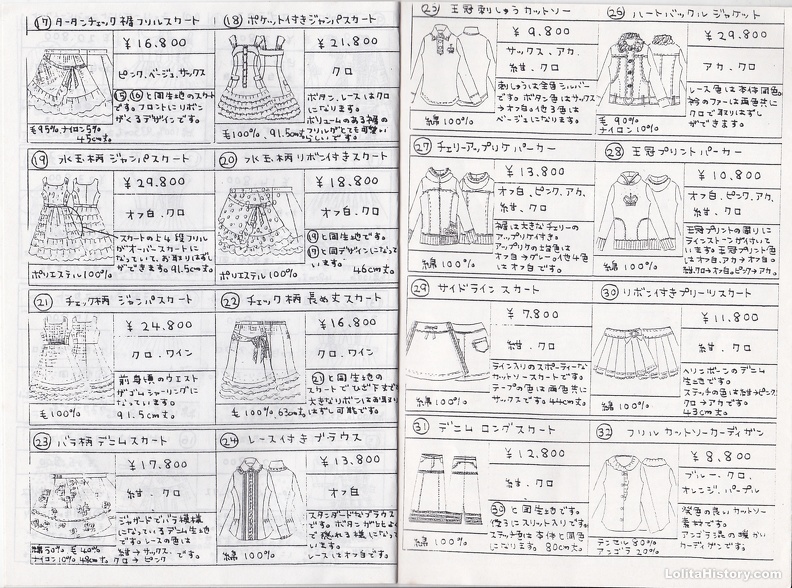 ⑰ タータンチェック裾フリルスカート
¥16.800
ピンク、ベージュ、サックス
⑮、⑯と同生地のスカート
です。フロントにリボン
がくるデザインです。
毛95%、ナイロン5%
45cm丈。
⑱ ポケット付きジャンパスカート
¥21.800
クロ
ボタン、レースはクロ
になります。
ボリュームのある裾の
フリルがとても可愛い
らしいです。
毛100%、91.5cm丈。
⑲ 水玉柄 ジャンパスカート
¥29.800
オフ白、クロ
スカートの上4段フリル
がオーバースカートに
なっていて、お取りはずし
ができます。91.5cm丈。
ポリエステル100%
⑳ 水玉柄 リボン付きスカート
¥18.800
オフ白、クロ
⑲と同生地です。
⑰と同デザインになって
います。
46cm丈
ポリエステル100%
㉑ チェック柄 ジャンパスカート
¥24.800
クロ、ワイン
前身頃のウエスト
がゴムシャーリングに
なっています。
91.5cm丈。
毛100%
㉒ チェック柄 長め丈スカート
¥16.800
クロ、ワイン
㉑と同生地の
スカートでひざ下丈です。
大きなリボンはお取り
はずし可能です。
毛100%、63cm丈
㉓ バラ柄 デニムスカート
¥17.800
紺、クロ
ジャガードでバラ模様
になっているデニム生地
です。レースの色は
紺→サックス、
クロ→ピンク です。
綿30% 毛40%
ナイロン10% 48cm丈。
㉔ レース付き ブラウス
¥13.800
オフ白
スタンダードなブラウス
です。ボタンが比よく
で隠れる様になって
います。
レースはオフ白です。
綿100%
㉕ 王冠刺しゅうカットソー
¥9.800
サックス、アカ、
紺、クロ
刺しゅうは金色シルバー
です。ボタン色はサックス
→オフ白、他3色は
ベージュになります。
綿100%
㉖ ハートバックル ジャケット
¥29.800
アカ、クロ
レース色は本体同色。
衿のファーは両色共に
クロで取りはずし
ができます。
毛90%
ナイロン10%
㉗ チェリーアップリケ パーカー
¥13.800
オフ白、ピンク、アカ、
紺、クロ
裾に大きなチェリーの
アップリケ付き。
アップリケの土台色は
オフ白→グレー。他4色
はオフ白です。
綿100%
㉘ 王冠プリントパーカー
¥10.800
オフ白、ピンク、アカ、
紺、クロ
王冠プリントの周りに
ラインストーンが付いて
います。王冠プリント色
はオフ白、アカ→オフ白。
紺、クロ→白。ピンク→アカ。
綿100%
㉙ サイドライン スカート
¥7.800
紺、クロ
ライン入りのスポーティーな
カットソースカートです。
テープの色は両色共に
サックスです。44cm丈。
綿100%
㉚ リボン付きプリーツスカート
¥11.800
紺、クロ
ヘリンボーンのデニム
生地です。
ステッチの色は紺→ピンク
クロ→アカです。
43cm丈。
綿100%
㉛ デニム ロングスカート
¥12.800
紺、クロ
㉚と同生地です。
後ろにスリット入りです。
ステッチ色は本体と同色
になります。80cm丈。
綿100%
㉜ フリル カットソーカーディガン
¥8.800
ブルー、クロ、
オレンジ、パープル
発色の良いカットソー
素材です。
アンゴラ混の暖かい
カーディガンです。
テンセル80%
アンゴラ20%
LolitaHistory.com